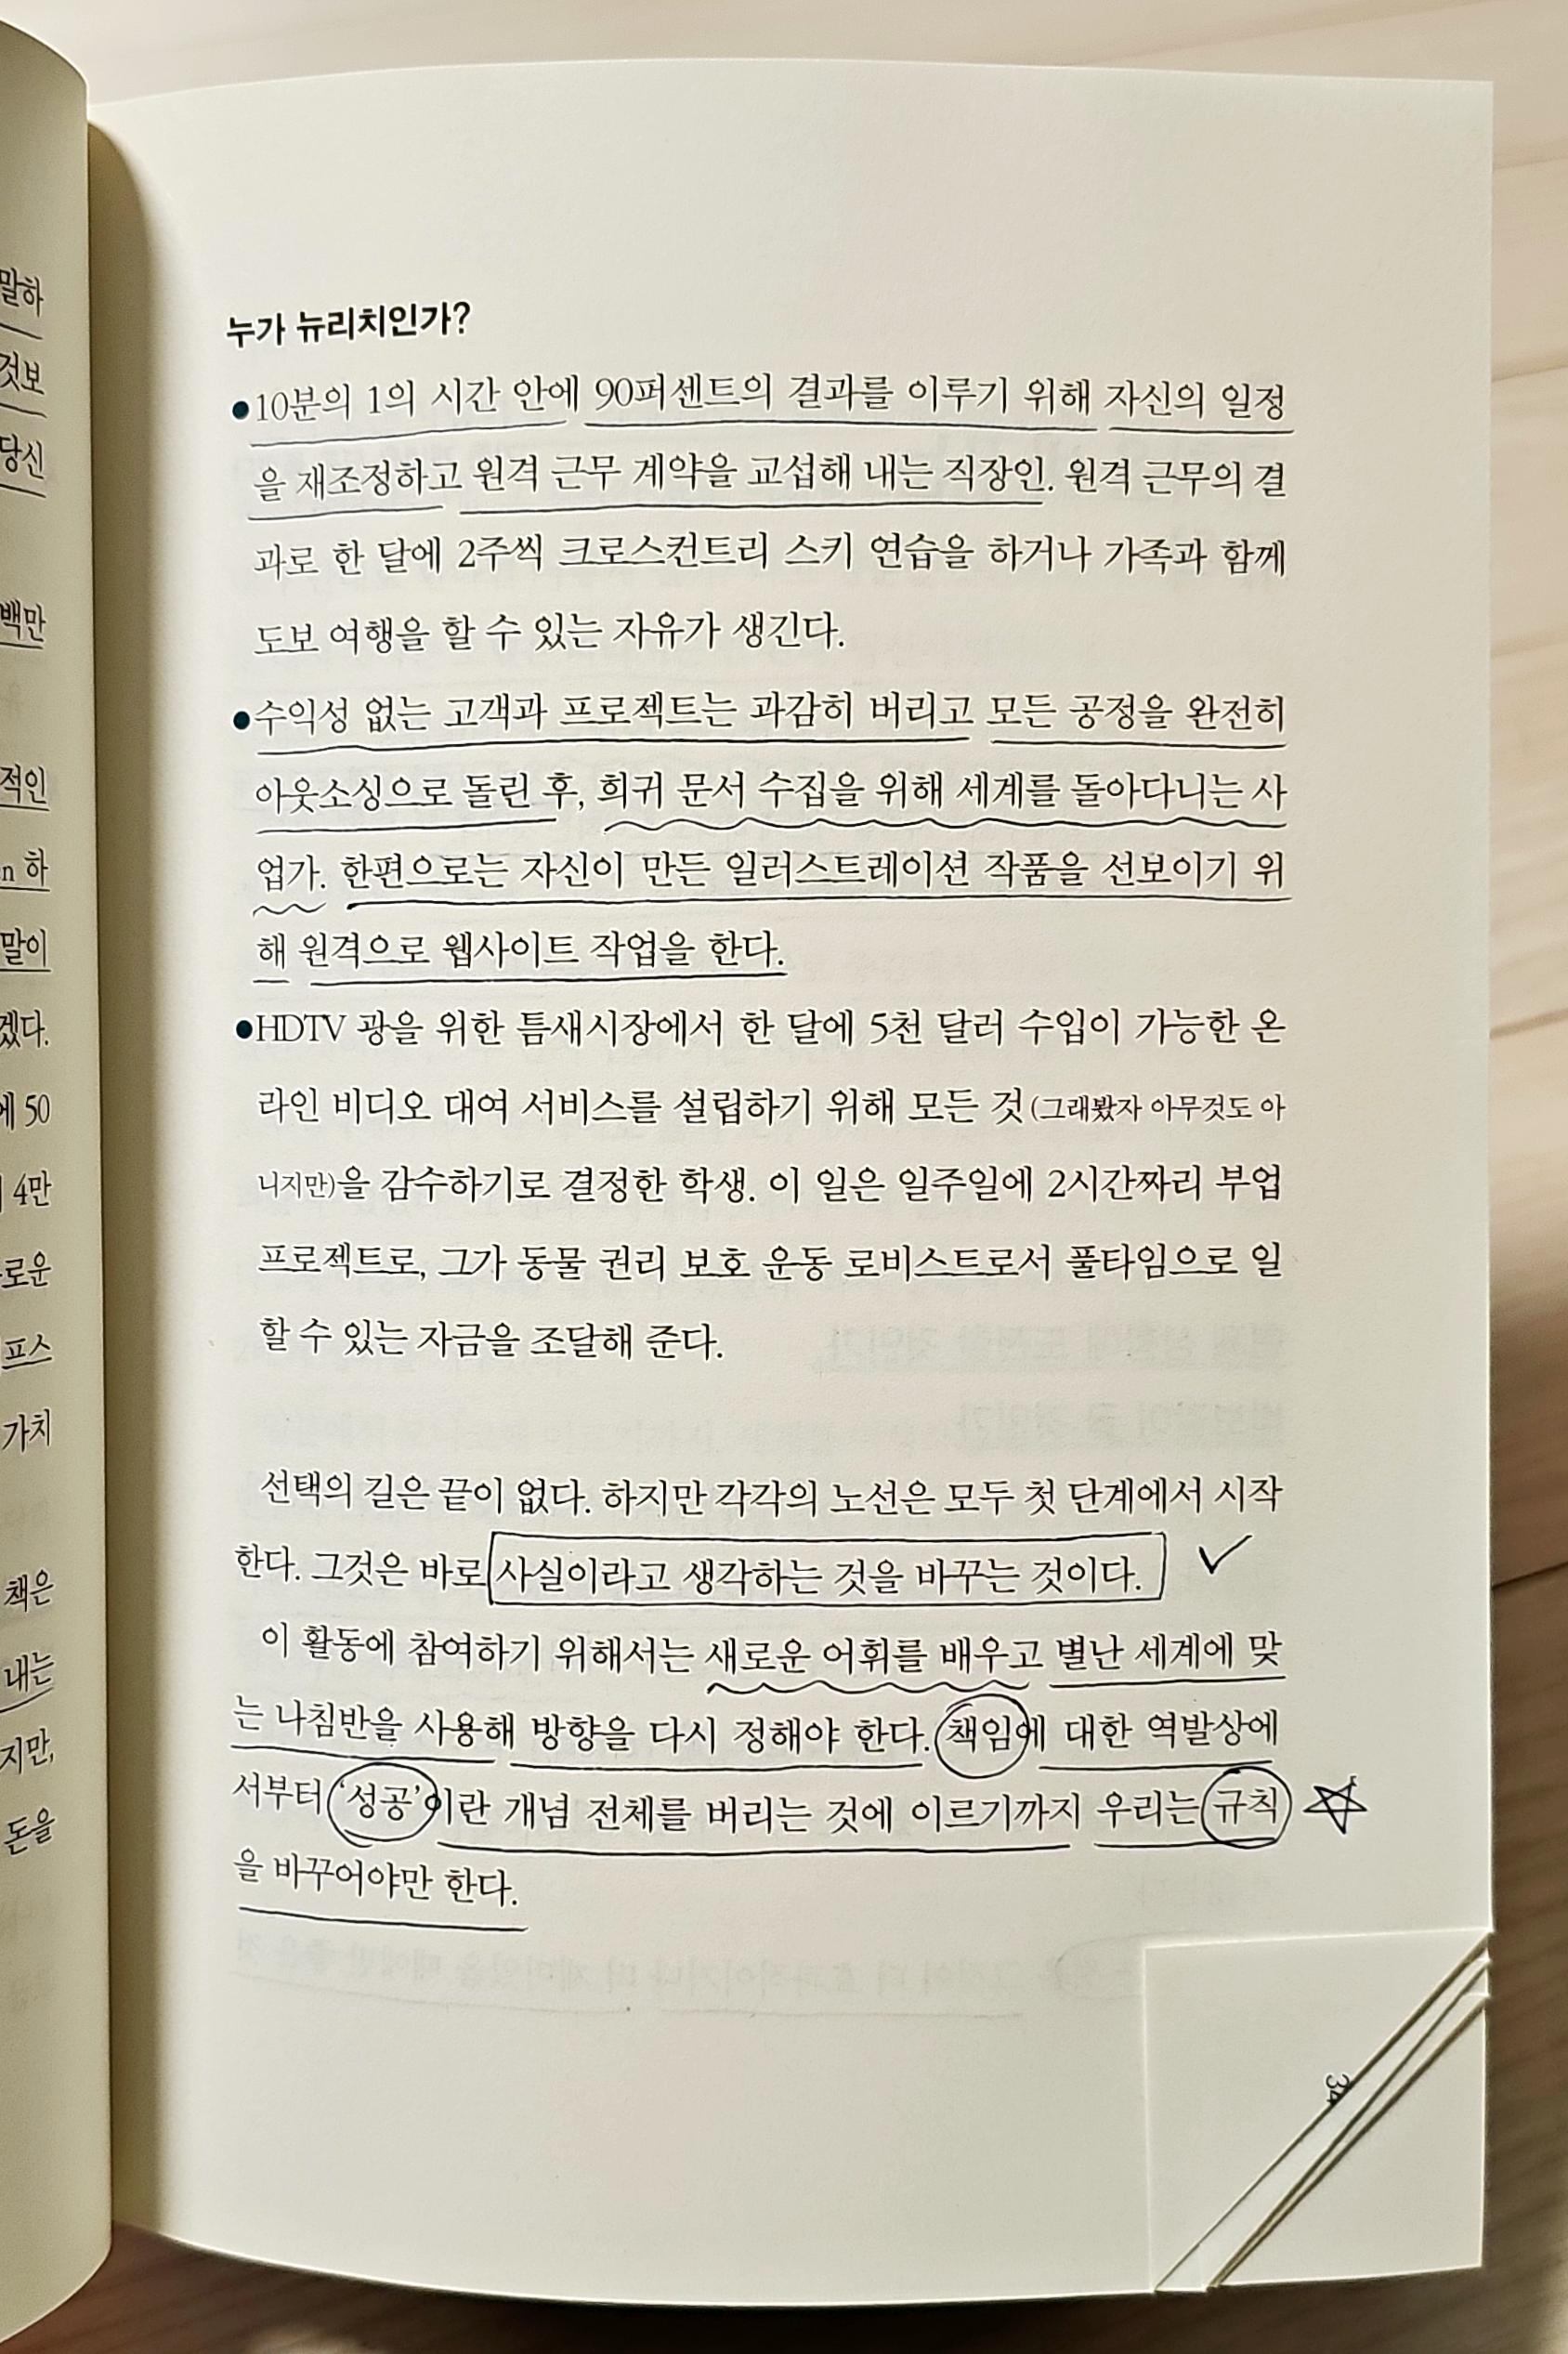 말하
것보
당신
백만
적인
n 하
말이
겠다.
에 50
4만
로운
프스
가치
책은
내는
지만,
돈을
누가 뉴리치인가?
●10분의 1의 시간 안에 90퍼센트의 결과를 이루기 위해 자신의 일정
을 재조정하고 원격 근무 계약을 교섭해 내는 직장인. 원격 근무의 결
과로 한 달에 2주씩 크로스컨트리 스키 연습을 하거나 가족과 함께
도보 여행을 할 수 있는 자유가 생긴다.
●수익성 없는 고객과 프로젝트는 과감히 버리고 모든 공정을 완전히
아웃소싱으로 돌린 후, 희귀 문서 수집을 위해 세계를 돌아다니는 사
업가. 한편으로는 자신이 만든 일러스트레이션 작품을 선보이기 위
해 원격으로 웹사이트 작업을 한다.
●HDTV 광을 위한 틈새시장에서 한 달에 5천 달러 수입이 가능한 온
라인 비디오 대여 서비스를 설립하기 위해 모든 것(그래봤자 아무것도 아
니지만)을 감수하기로 결정한 학생. 이 일은 일주일에 2시간짜리 부업
프로젝트로, 그가 동물 권리 보호 운동 로비스트로서 풀타임으로 일
할 수 있는 자금을 조달해 준다.
선택의 길은 끝이 없다. 하지만 각각의 노선은 모두 첫 단계에서 시작
한다. 그것은 바로 사실이라고 생각하는 것을 바꾸는 것이다.
이 활동에 참여하기 위해서는 새로운 어휘를 배우고 별난 세계에 맞
는 나침반을 사용해 방향을 다시 정해야 한다. 책임에 대한 역발상에
서부터 '성공'이란 개념 전체를 버리는 것에 이르기까지 우리는 규칙
을 바꾸어야만 한다.